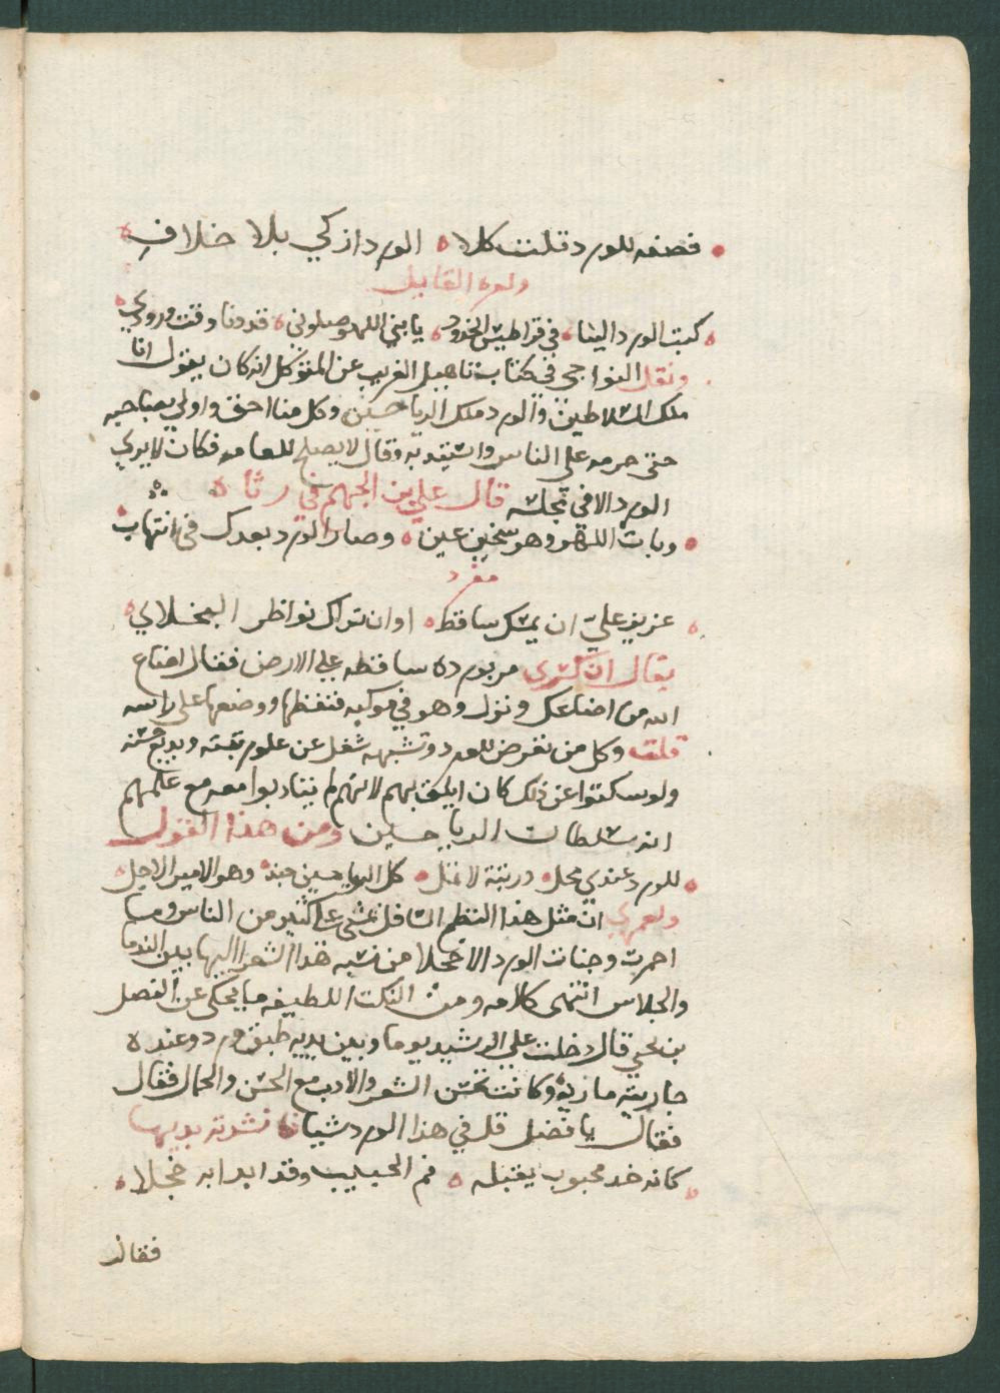 فصفه للورد قلت كلا ه الورد ازكي بلا خلاف ه
ولله القايل
كتب الورد الينا ه في قراطيس الخدود ه يا بني اللهو صلوني ه قد دنا وقت ورودي ه
ونقل النواجي في كتابه تاهيل الغريب عن المتوكل انه كان يقول انا
ملك السلاطين والورد ملك الرياحين وكل منا احق واولي بصاحبه
حتى حرمه على الناس واستبد به وقال لا يصلح للعامه فكان لا يري
الورد الا في مجلسه قال علي بن الجهم في رثاه
وبات اللهو وهو سخين عين ه وصار الورد بعدك في انتهاب
مفرد
عزيز علي ان يمسك ساقط ه او ان تراك نواظر البخلاي ه
يقال ان كسرى مر بورده ساقطه على الارض فقال اضاع
الله من اضاعك ونزل وهو في موكبه فنفضها ووضعها على راسه
قلت وكل من تعرض للورد وتشبيهه شغل عن علو رتبته وبديع حسنه
ولو سكتوا عن ذلك كان اليق بهم لانهم لم يتادبوا معه مع علمهم
انه سلطان الرياحين ومن هذا القول
للورد عندي محل ه ورتبة لا تمل ه كل الرياحين جند ه وهو الامير الاجل ه
ولعمري ان مثل هذا النظم السافل مشى على كثير من الناس وما
احمرت وجنات الورد الا خجلا من نسبه هذا الشعر اليها بين الندما
والجلاس انتهى كلامه ومن النكت اللطيفه ما يحكى عن الفضل
بن يحيي قال دخلت على الرشيد يوما وبين يديه طبق ورد وعنده
جاريته ماريه وكانت تحسن الشعر والادب مع الحسن والجمال فقال
فقال يا فضل قل في هذا الورد شيا فانشدته بديها
كانه خد محبوب يقبله ه فم الحبيب وقد ابدا به خجلا ه
فقال